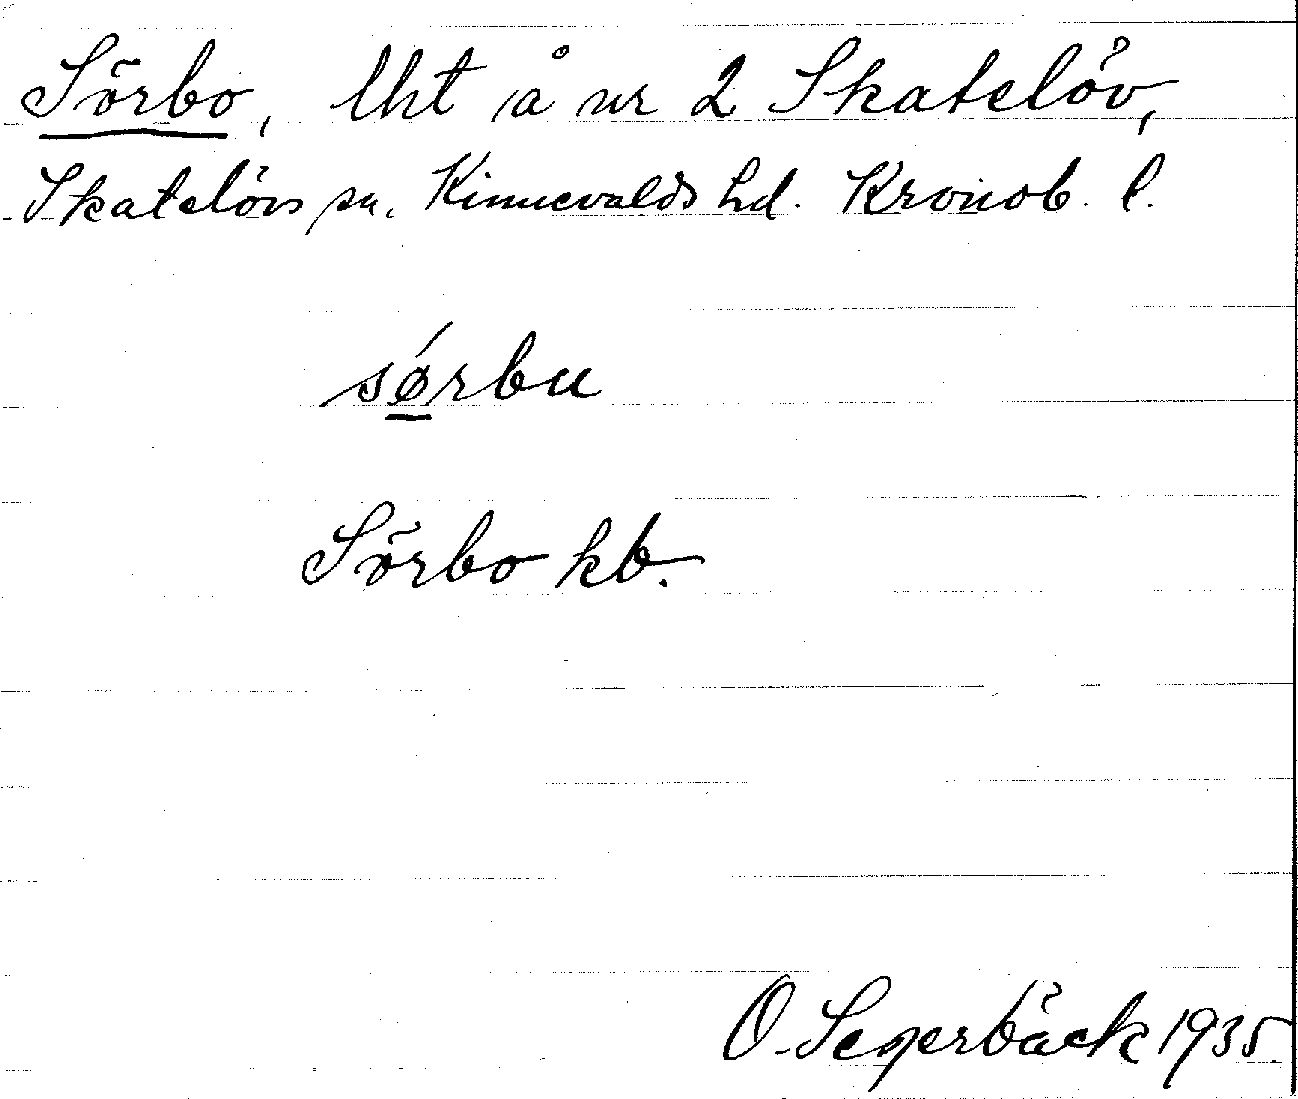 Sörbo, lht å nr 2 Skatelöv,
Skatelövs sn. Kinnevalds hd. Kronob. l.
sǿrbu
Sörbo kb.
O. Segerbäck 1935.